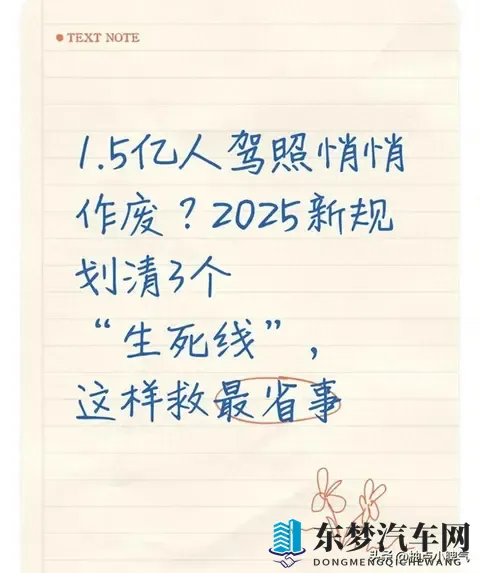 TEXT NOTE
1.5亿人驾照悄悄
作废？2025新规
划清3个
“生死线”，
这样救最省事
东梦汽车网
DONGMENGQICHEWANG